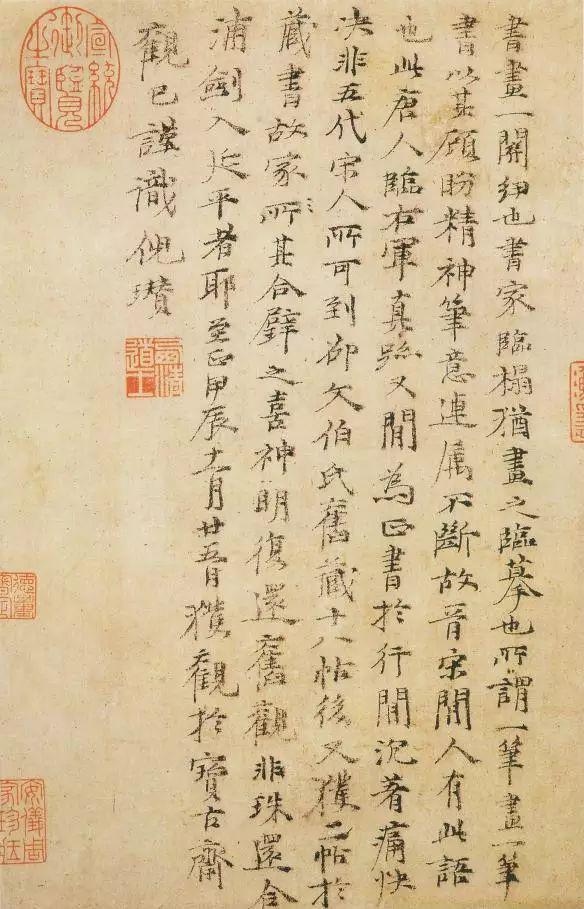 書畫一關紐也書家臨榻猶畫之臨摹也所謂一筆畫一筆
書以其顧盼精神筆意連屬不斷故晉宋間人有此語
也此唐人臨右軍真跡又間為正書於行間沉著痛快
决非五代宋人所可到卲文伯氏舊藏十八帖後又獲二帖於
藏書故家所其合璧之喜神明復還舊觀非珠還合
浦劍入延平者耶至正甲辰十一月廿五日獲觀於寶古齋
觀已謹識倪瓚
宣統御覽之寶
安儀周家珍藏